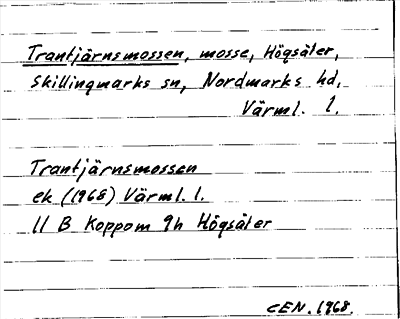 Trantjärnsmossen, mosse, Högsäter,
Skillingmarks sn, Nordmarks hd,
Värml. l.
Trantjärnsmossen
ek (1968) Värml. l.
11 B Koppom 9h Högsäter
CEN. 1968.